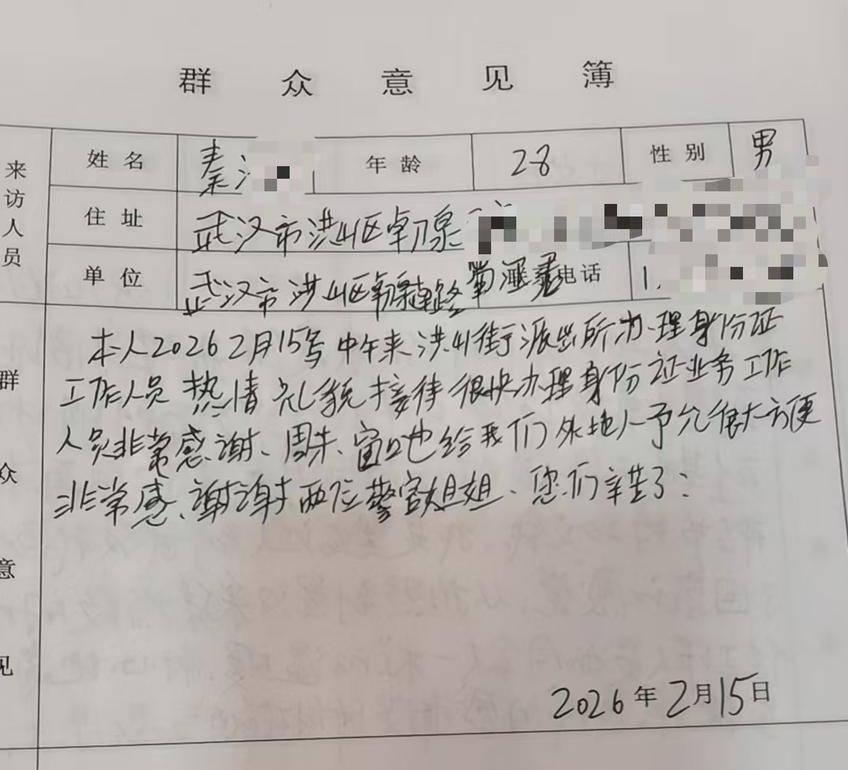 群众意见簿
来访人员
姓名 秦 年龄 28 性别 男
住址 武汉市洪山区卓刀泉
单位 武汉市洪山区卓刀泉南路 电话 1.
群众意见
本人2026 2月15号中午来洪山街派出所办理身份证
工作人员 热情礼貌接待很快办理身份证业务工作
人员非常感谢、周末、窗口也给我们外地人予允很大方便
非常感、谢谢两位警官姐姐、您们辛苦了:
2026年2月15日